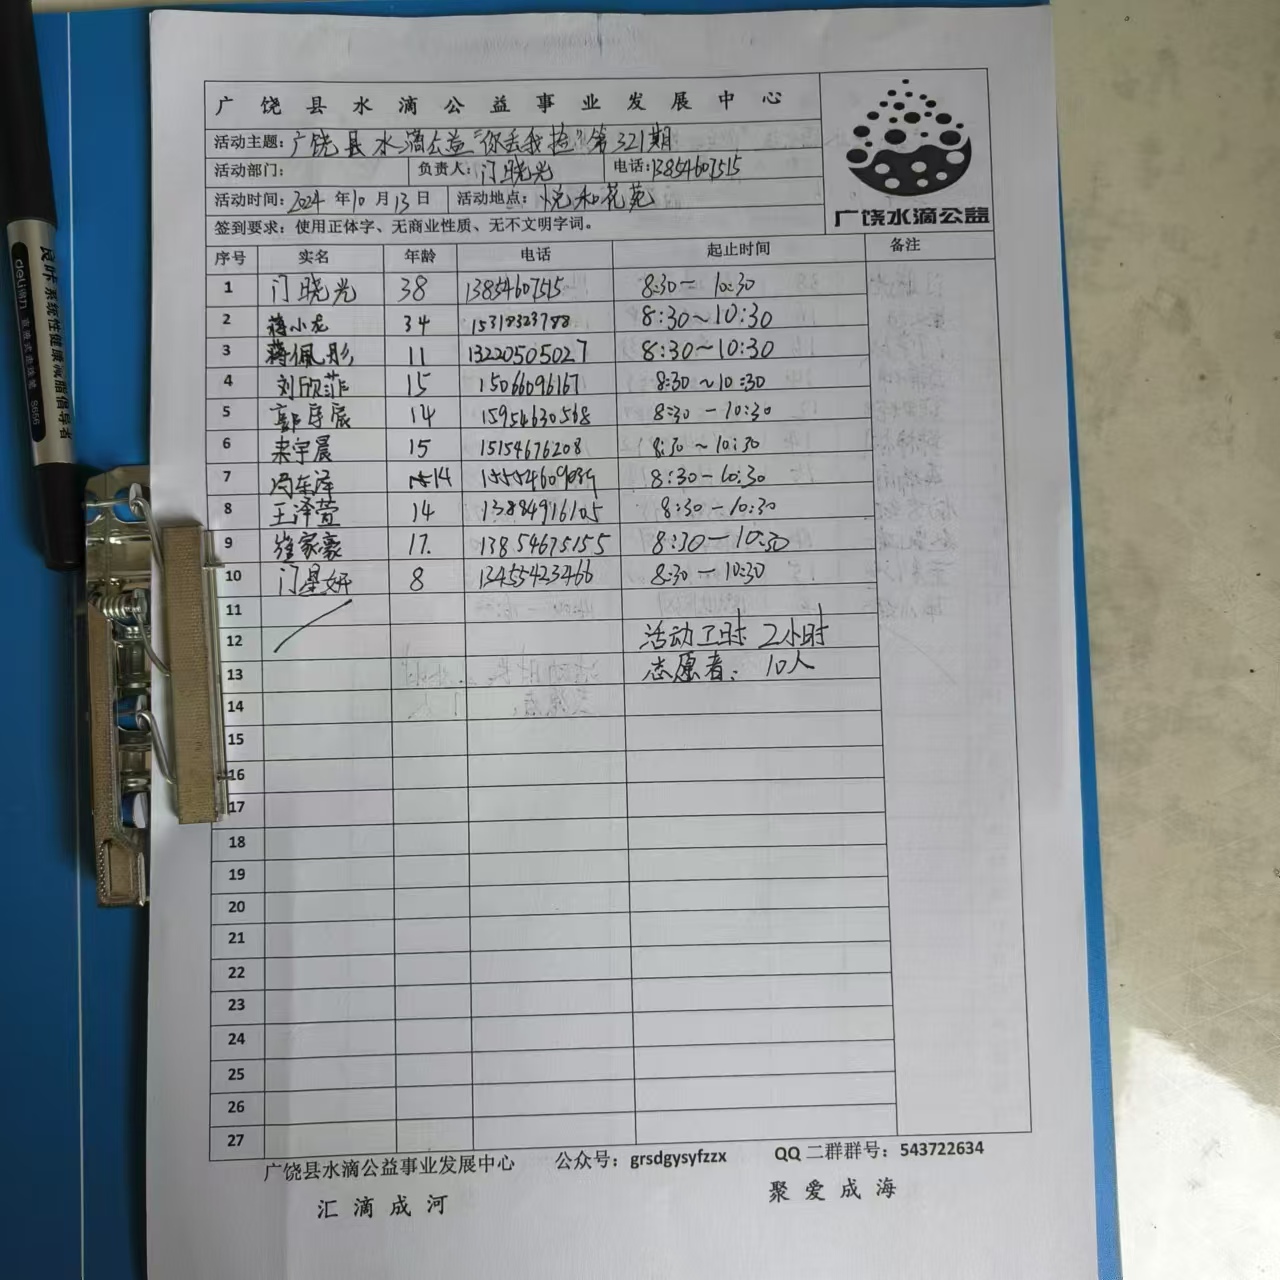 广饶县水滴公益事业发展中心
活动主题：广饶县水滴公益“你丢我捡”第321期
活动部门： 负责人：门晓光 电话：13854607515
活动时间：2024年10月13日 活动地点：悦和花苑
签到要求：使用正体字、无商业性质、无不文明字词。
广饶水滴公益
序号 实名 年龄 电话 起止时间 备注
1 门晓光 38 13854607515 8:30一10:30
2 蒋小龙 34 15318323788 8:30~10:30
3 蒋佩彤 11 13220505027 8:30~10:30
4 刘欣菲 15 15066096167 8:30~10:30
5 14 15954630568 8:30-10:30
6 宇晨 15 15154676208 8:30~10:30
7 14 8:30-10:30
8 王泽萱 14 13884916105 8:30-10:30
9 崔家豪 17. 13854675155 8:30一10:30
10 门星妤 8 13455423466 8:30一10:30
11
12 活动了时 2小时
13 志愿者：10人
14
15
16
17
18
19
20
21
22
23
24
25
26
27
广饶县水滴公益事业发展中心 公众号：grsdgysyfzzx QQ二群群号：543722634
汇滴成河 聚爱成海
良叶系统性健康减脂倡导者
deli得力 直液式走珠笔 S656